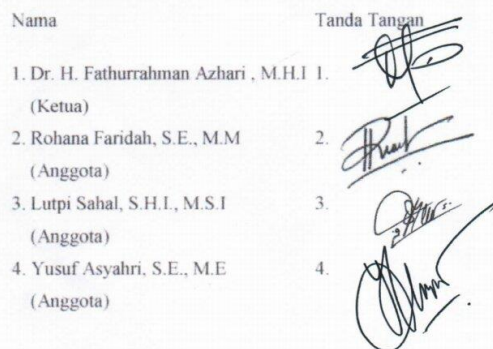 Nama Tanda Tangan
1. Dr. H. Fathurrahman Azhari , M.H.I 1.
(Ketua)
2. Rohana Faridah, S.E., M.M 2.
(Anggota)
3. Lutpi Sahal, S.H.I., M.S.I 3.
(Anggota)
4. Yusuf Asyahri, S.E., M.E 4.
(Anggota)